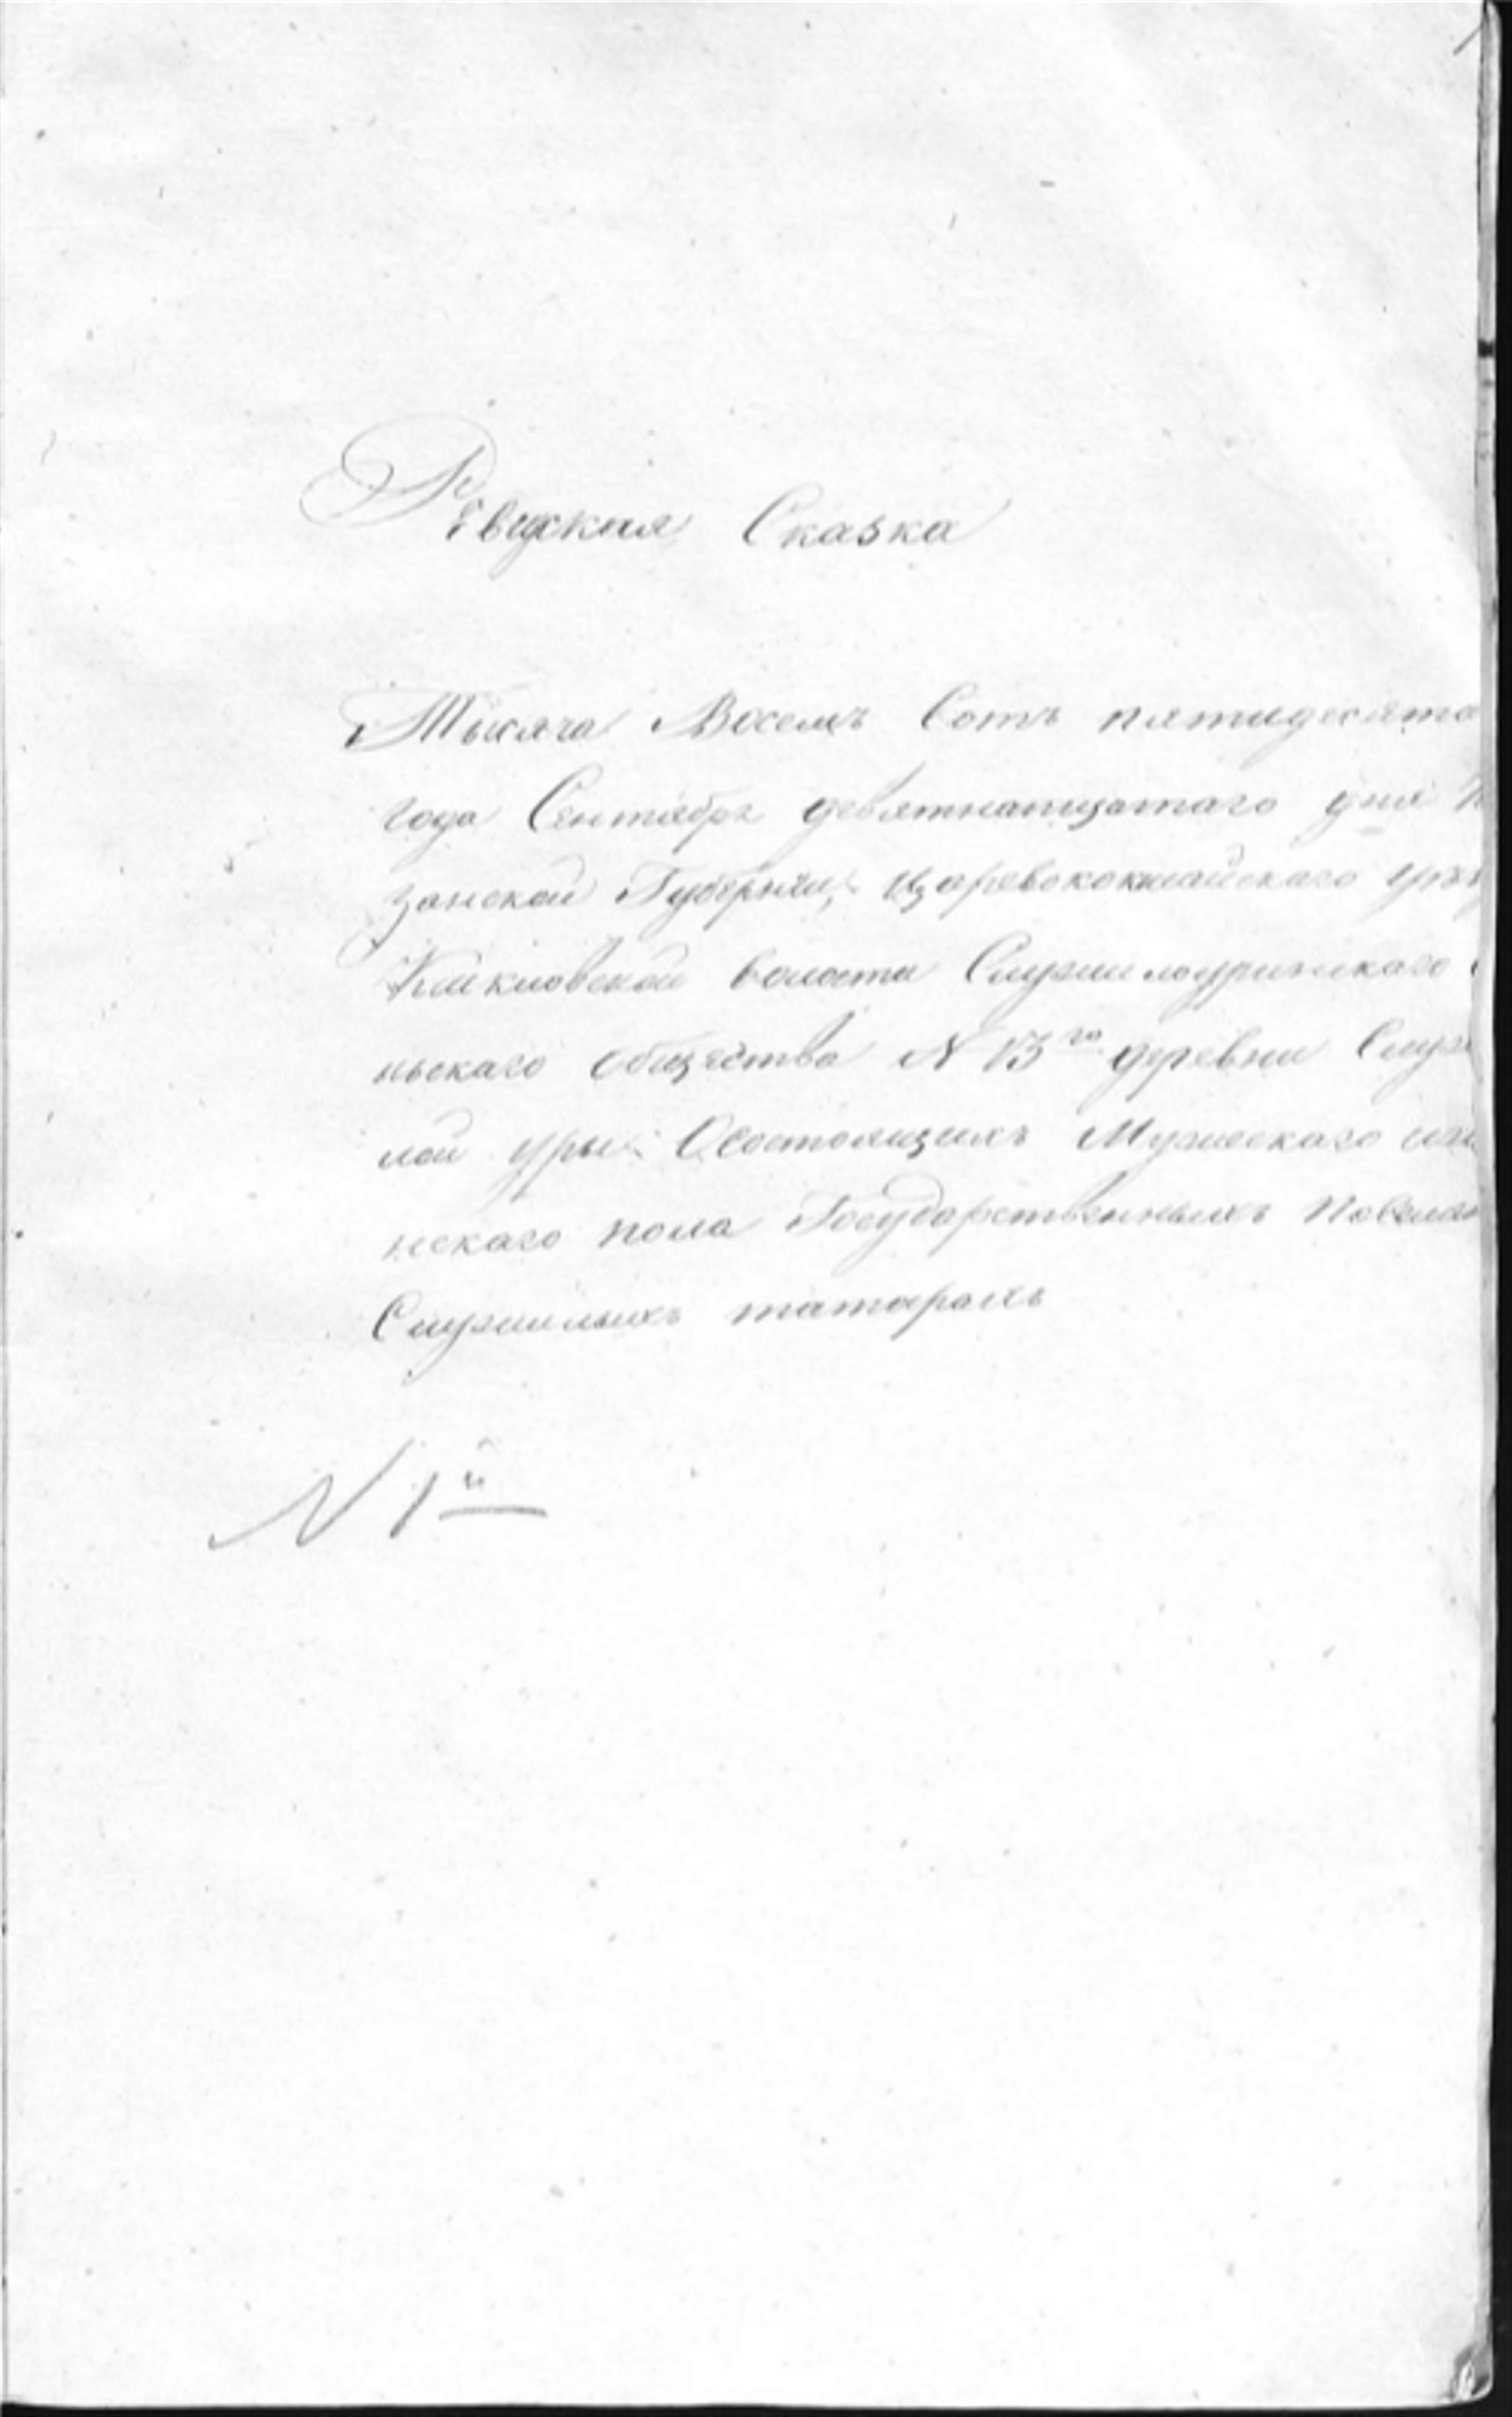 Ревизская Сказка
Тысяча Восемь Сотъ пятидесято
года Сентября девятнатцатаго дня
занской Губернии, Царевококшайскаго уез
волости Служилоуринскаго
ньскаго общества N 13го деревни Служ
лой уры. Осостоящихъ Мужескаго иже
нскаго пола Государственныхъ Поселян
Служилыхъ татарахъ
N 1й